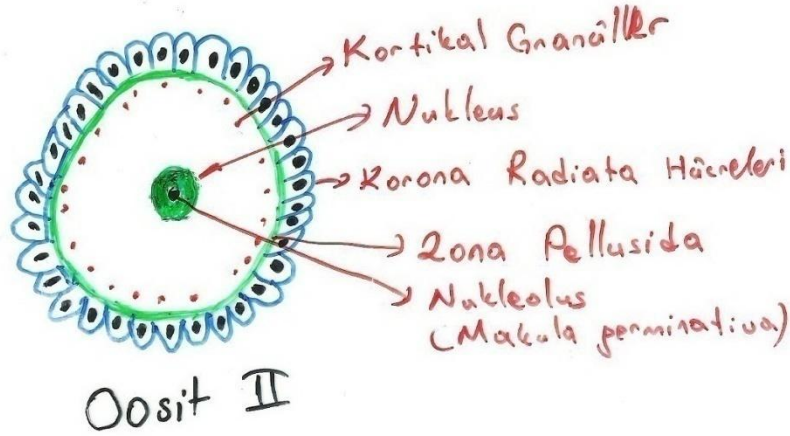 Kortikal Granüller
Nukleus
Korona Radiata Hücreleri
Zona Pellusida
Nukleolus
(Makula germinativa)
Oosit II